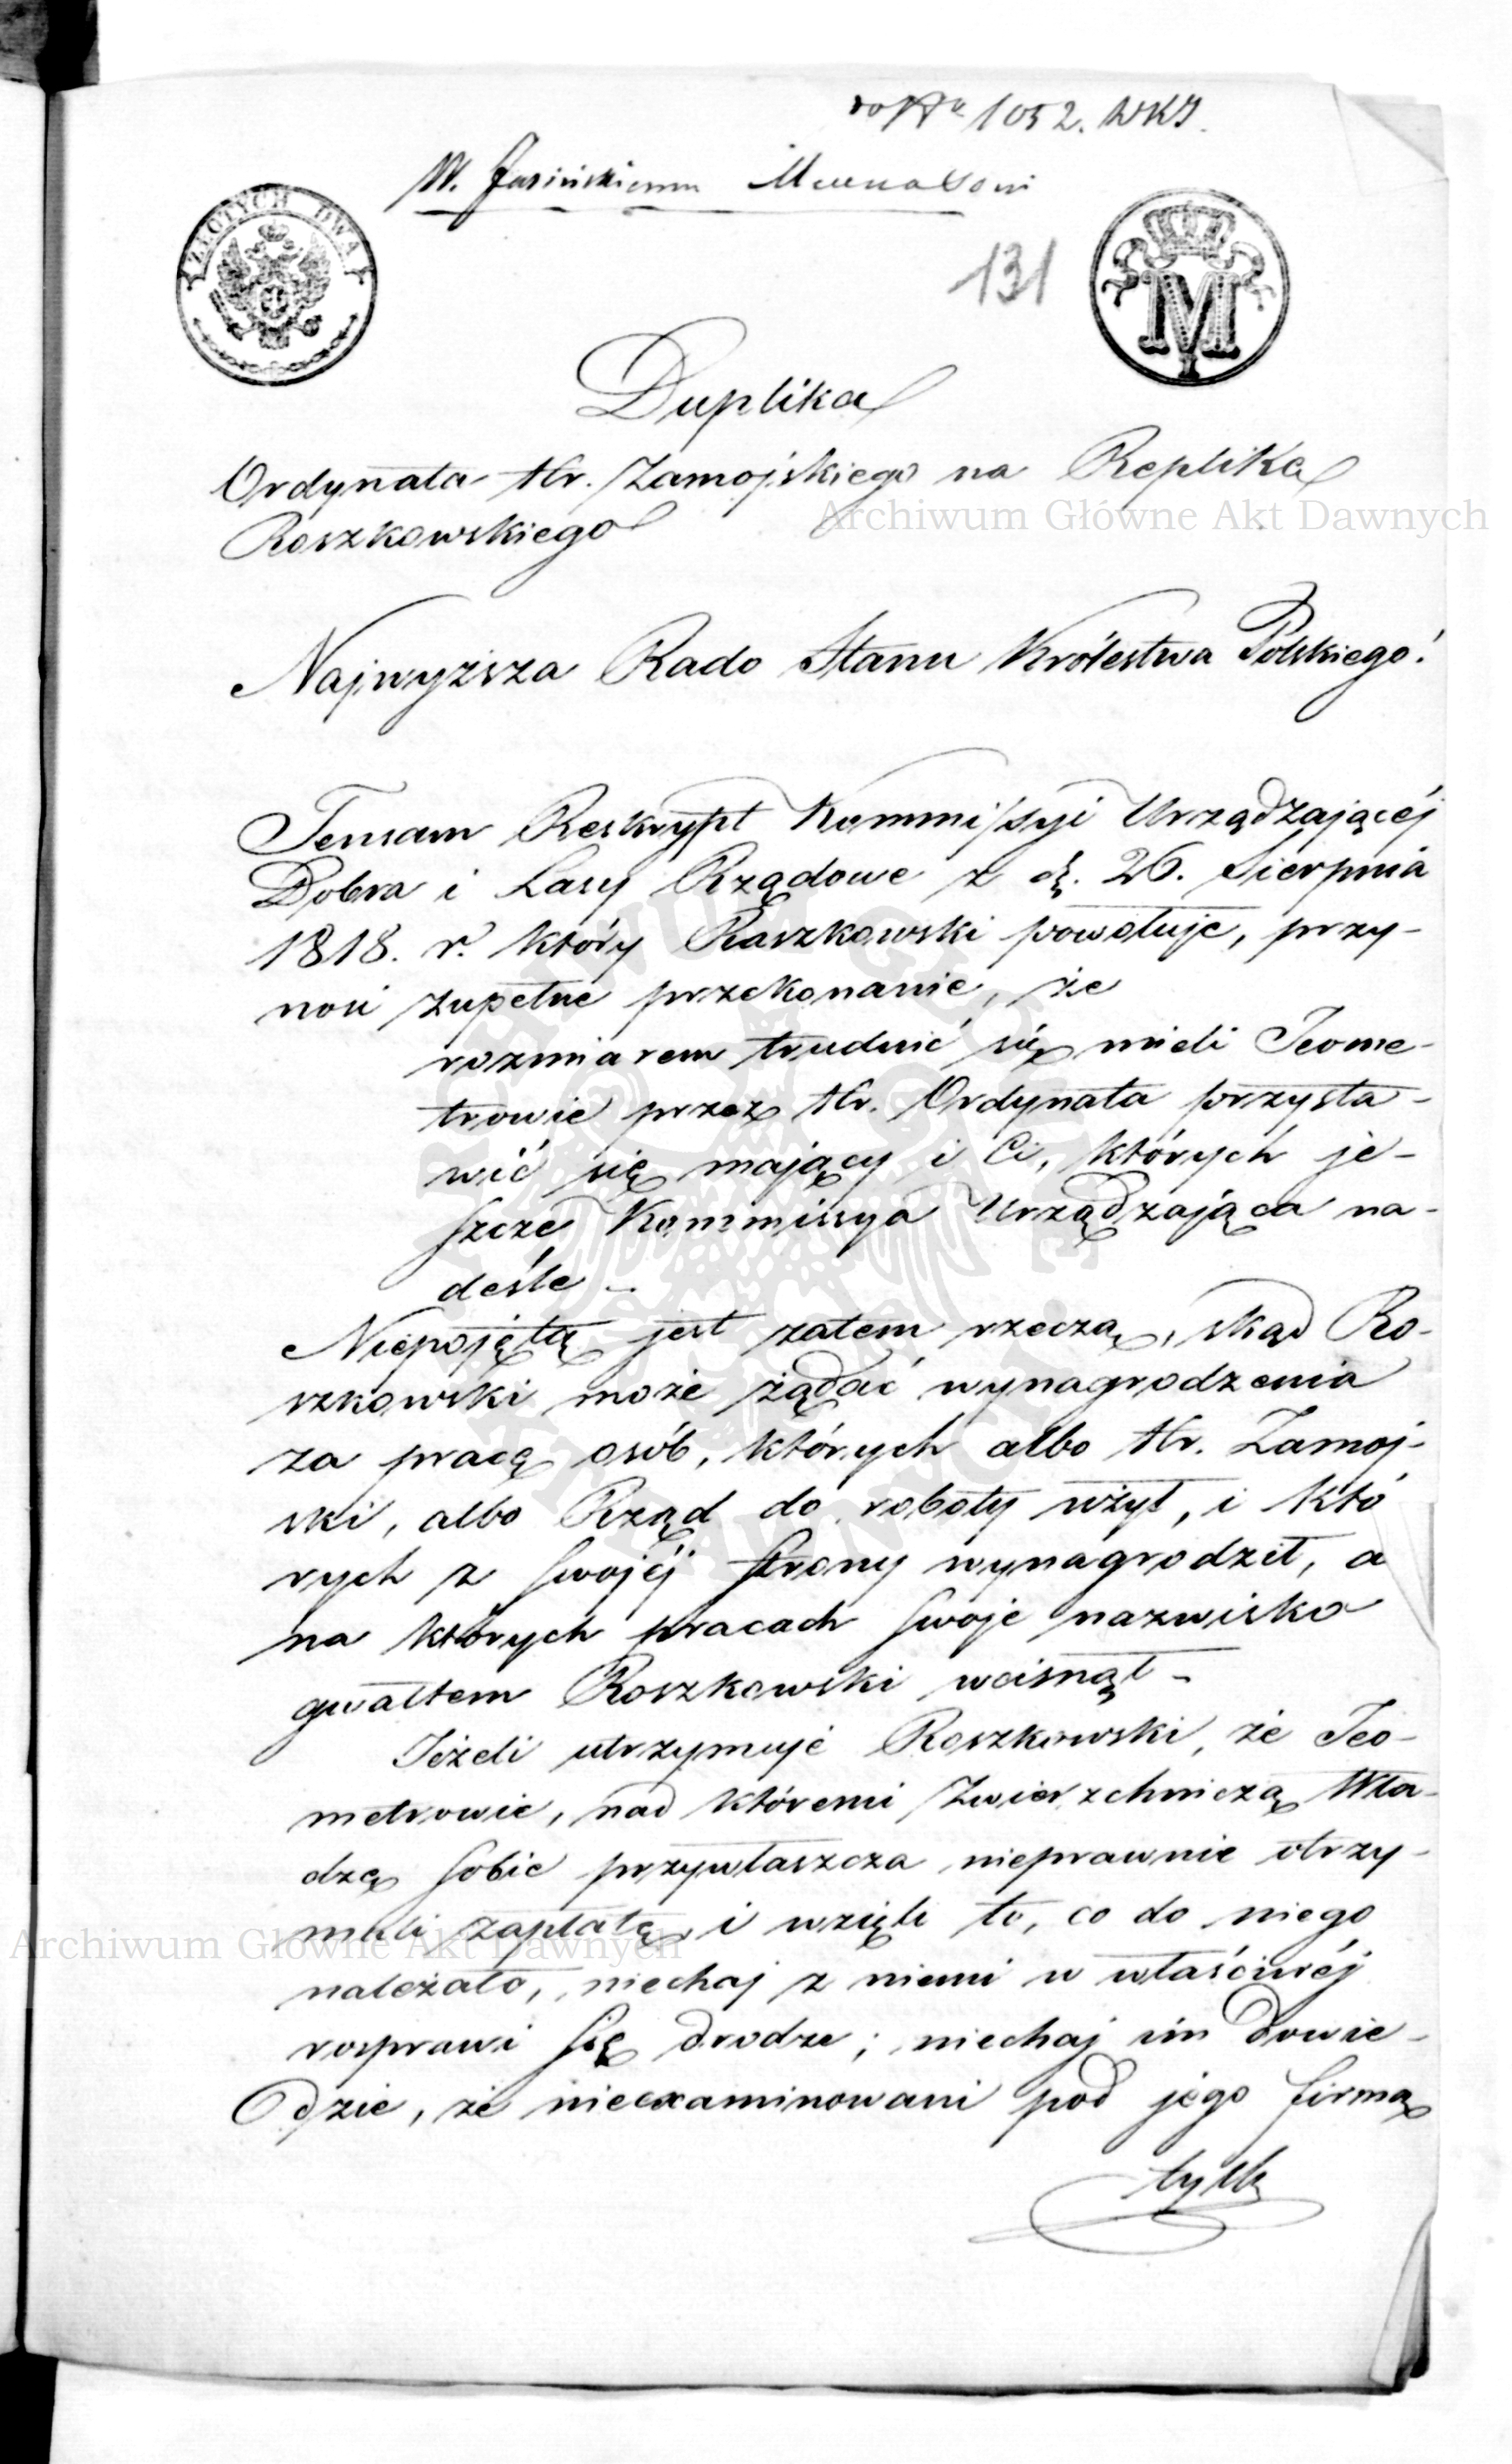 1052. WKS.
W. Jasińskiemu
ZŁOTYCH DWA
131
M
Duplika
Ordynata Hr. Zamojskiego na Replikę
Roszkowskiego
Archiwum Główne Akt Dawnych
Najwyższa Rado Stanu Królestwa Polskiego!
Tensam Reskrypt Kommissyi Urządzającéj
Dobra i Lasy Rządowe z d. 26. Sierpnia
1818. r. który Roszkowski powołuje, przy-
nosi zupełne przekonanie, że
rozmiarem trudnić się mieli Jeome-
trowie przez Hr. Ordynata przysta-
wić się mający i Ci, których je-
szcze Kommissya Urządzająca na-
deśle –
Niepojętą jest zatem rzeczą, skąd Ro-
szkowski może żądać wynagrodzenia
za pracę osób, których albo Hr. Zamoj-
ski, albo Rząd do roboty użył, i któ
rych z swojéj strony wynagrodził, a
na których pracach swoje nazwisko
gwałtem Roszkowski wcisnął –
Jeżeli utrzymuje Roszkowski, że Jeo-
metrowie, nad któremi Zwierzchniczą Wła-
dzę sobie przywłaszcza nieprawnie otrzy-
mali zapłatę, i wzięli to, co do niego
Archiwum Główne Akt Dawnych
należało, niechaj z niemi w właściwéj
rosprawi się drodze; niechaj im dowie-
dzie, że nieexaminowani pod jego firmą
tylk